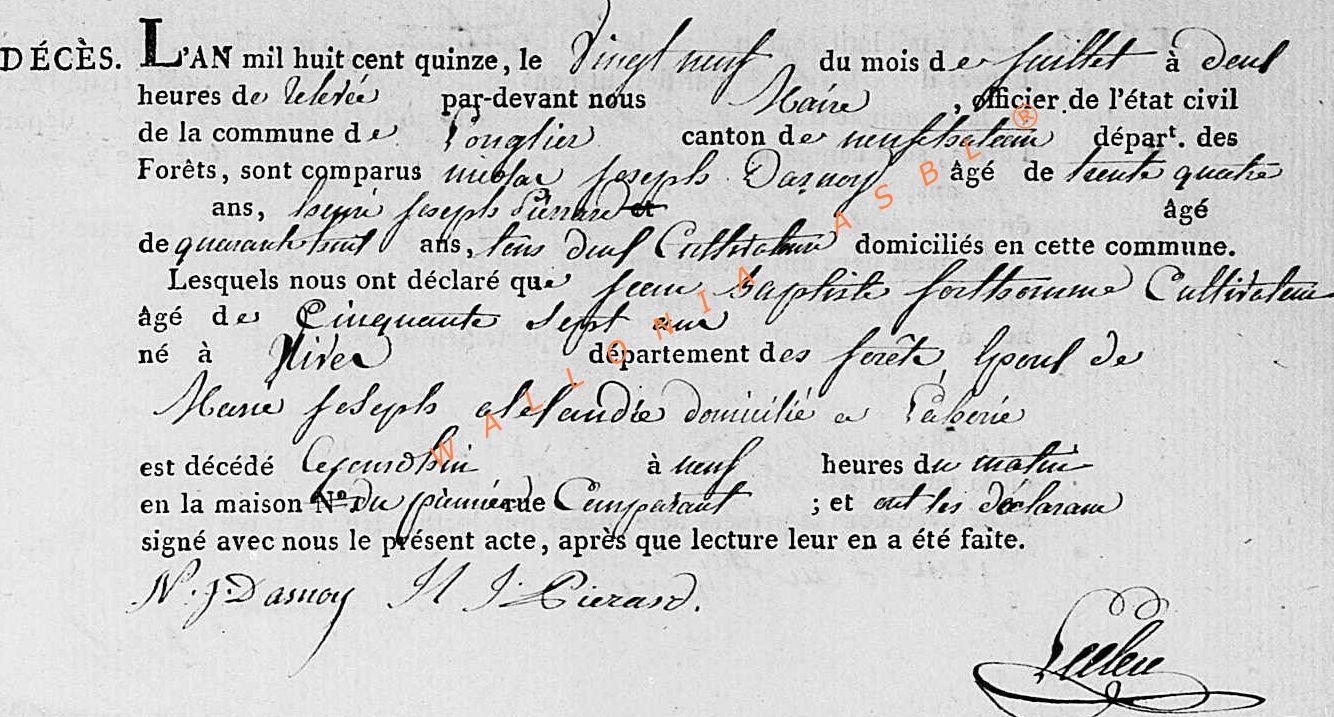 DÉCÈS. L'AN mil huit cent quinze, le Vingt neuf du mois de juillet à deux
heures de relevée par-devant nous Maire, officier de l'état civil
de la commune de Longlier canton de neufchateau départ. des
Forêts, sont comparus nicolas joseph Dasnoy âgé de trente quatre
ans, henri joseph Pierrard et âgé
de quarante huit ans, tous deux Cultivateurs domiciliés en cette commune.
Lesquels nous ont déclaré que jean baptiste forthomme Cultivateur
âgé de Cinquante Sept ans
né à département des forêts, Epoux de
Marie joseph domicilié a
est décédé Cejourdhui à neuf heures du matin
en la maison N° du premier rue Comparant ; et ont les déclarans
signé avec nous le présent acte, après que lecture leur en a été faite.
N. j. Dasnoy H J Pierard.
WALLONIA ASBL ®